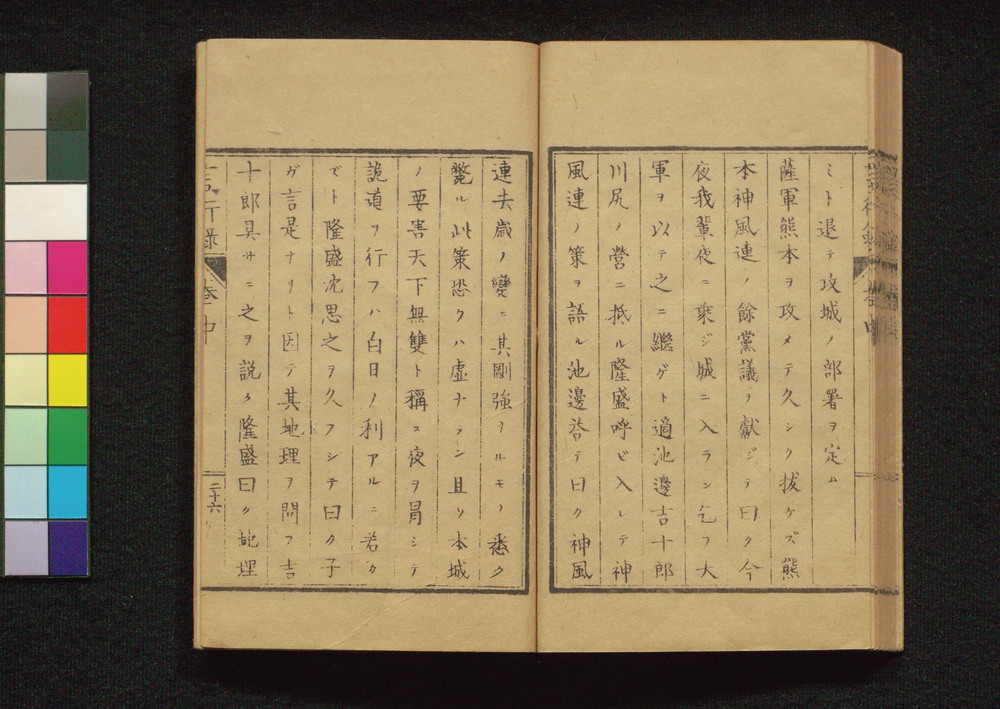 ミト退テ攻城ノ部署ヲ定ム
薩軍熊本ヲ攻メテ久シク拔ケズ熊
本神風連ノ餘黨議ヲ獻ジテ曰ク今
夜我輩夜ニ乘ジ城ニ入ラン乞フ大
軍ヲ以テ之ニ繼ゲト適池邊吉十郎
川尻ノ營ニ抵ル隆盛呼ビ入レテ神
風連ノ策ヲ語ル池邊答テ曰ク神風
連夫歲ノ變ニ其剛強ナルモノ悉ク
斃ル此策恐クハ虛ナラン且ツ本城
ノ要害天下無雙ト稱ス夜ヲ冐シテ
詭道ヲ行フハ白日ノ利アルニ若カ
ズト隆盛沈思之ヲ久フシテ曰ク子
ガ言是ナリト因テ其地理ヲ問フ吉
十郎具サニ之ヲ説ク隆盛曰ク地理
言行録
卷中
二十六